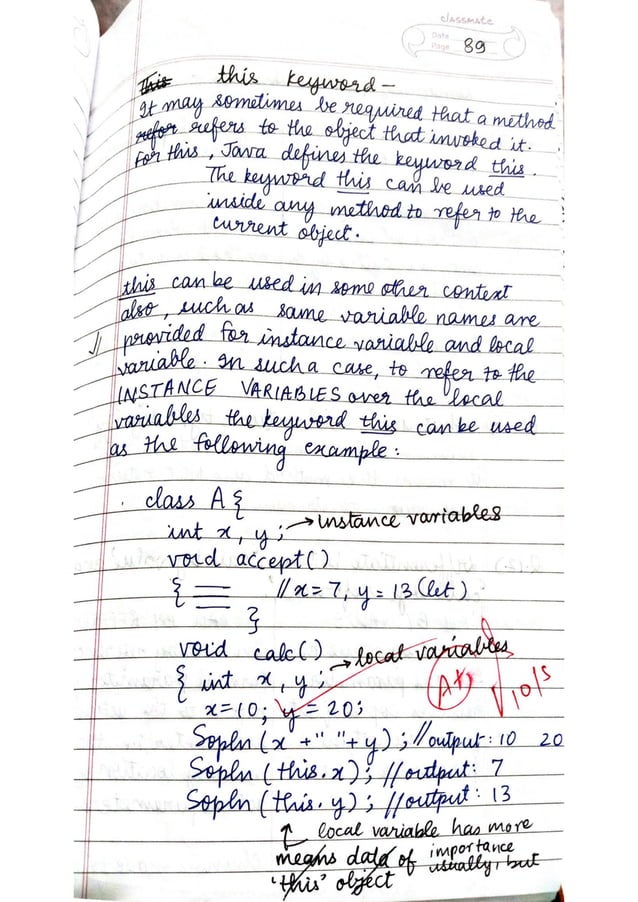 classmate
Date
Page 89
This this keyword -
It may sometimes be required that a method
refor refers to the object that invoked it.
For this, Java defines the keyword this.
The keyword this can be used
inside any method to refer to the
current object.
this can be used in some other context
also, such as same variable names are
provided for instance variable and local
variable. In such a case, to refer to the
INSTANCE VARIABLES over the local
variables the keyword this can be used
as the following example:
class A {
int x, y; → instance variables
void accept()
{ // x = 7, y = 13 (let)
}
void calc()
{ int x, y; → local variables
x=10; y = 20;
Sopln (x +" "+ y); // output: 10 20
Sopln (this.x); // output: 7
Sopln (this.y); // output: 13
A+
10/5
↑ local variable has more
means data of importance
usually, but
'this' object